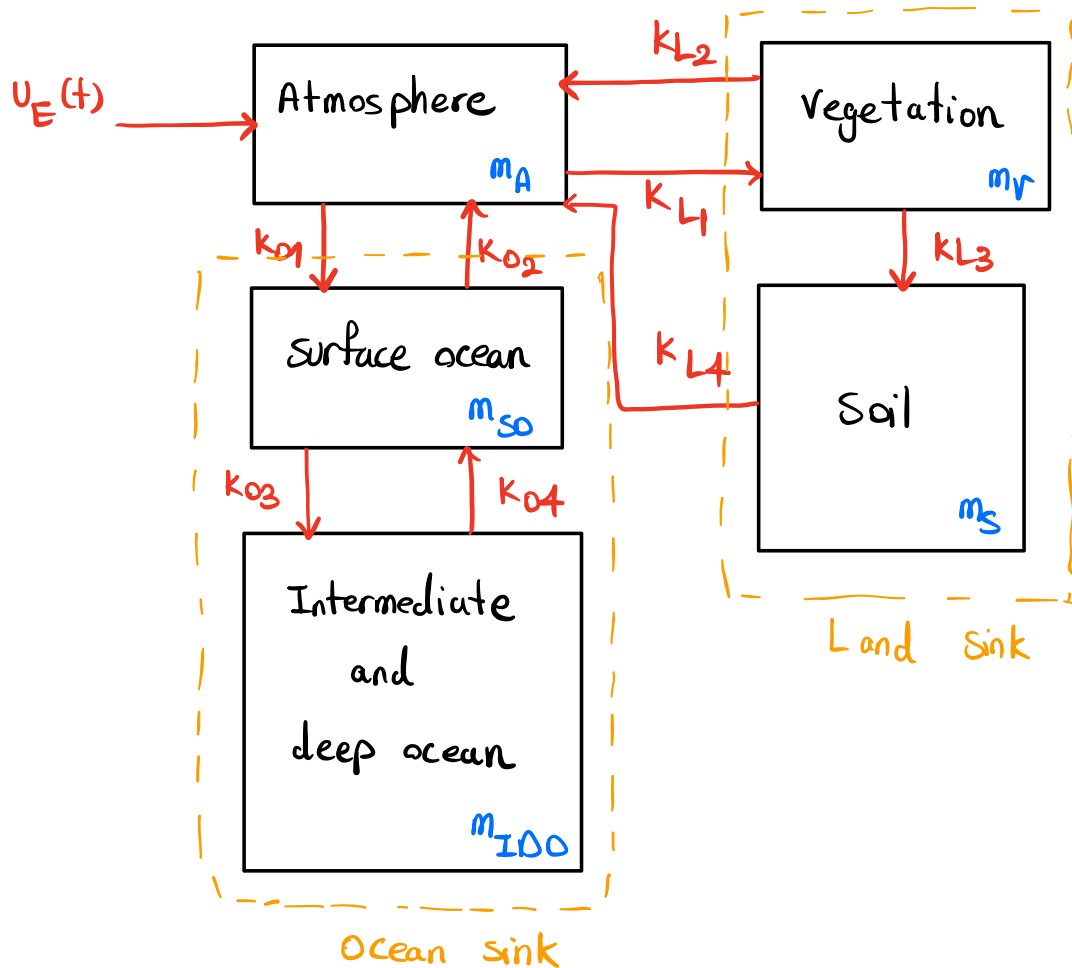 U_E(t)
Atmosphere
m_A
K_L2
K_L1
Vegetation
m_V
K_O1
K_O2
K_L3
Surface ocean
m_SO
K_L4
Soil
m_S
K_O3
K_O4
Intermediate
and
deep ocean
m_IDO
Land sink
Ocean sink